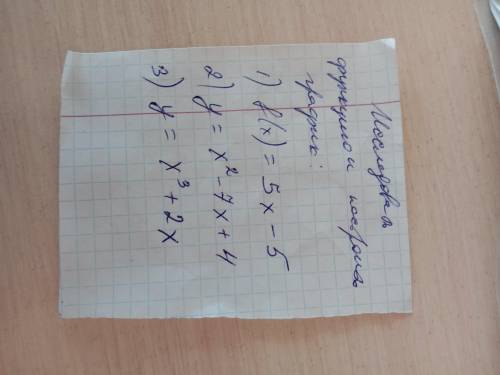 Исследовать
функцию и построить
график:
1) f(x) = 5x - 5
2) y = x² - 7x + 4
3) y = x³ + 2x